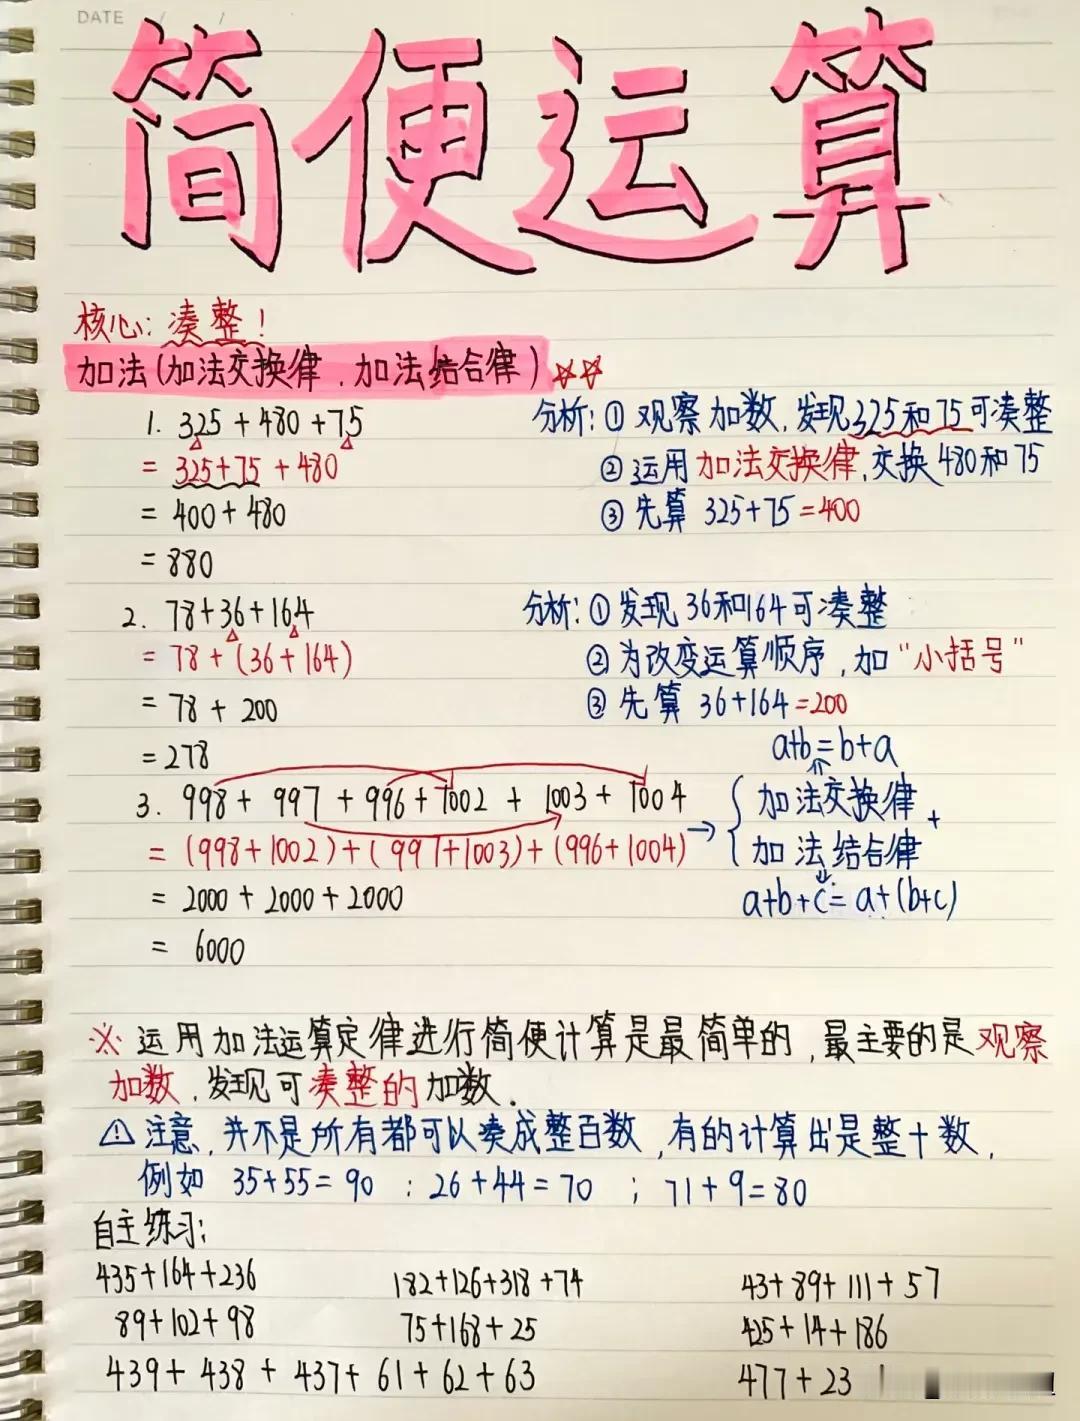 DATE / /
简便运算
核心:凑整!
加法(加法交换律、加法结合律)☆☆
1. 325+480+75
= 325+75+480
= 400+480
= 880
分析:① 观察加数,发现325和75可凑整
② 运用加法交换律,交换480和75
③ 先算 325+75=400
2. 78+36+164
= 78+(36+164)
= 78+200
= 278
分析:① 发现36和164可凑整
② 为改变运算顺序,加“小括号”
③ 先算 36+164=200
3. 998+997+996+1002+1003+1004
= (998+1002)+(997+1003)+(996+1004)
= 2000+2000+2000
= 6000
a+b=b+a
→ { 加法交换律 +
加法结合律
a+b+c=a+(b+c)
※ 运用加法运算定律进行简便计算是最简单的,最主要的是观察
加数,发现可凑整的加数.
⚠ 注意,并不是所有都可以凑成整百数,有的计算出是整十数,
例如 35+55=90 ; 26+44=70 ; 71+9=80
自主练习:
435+164+236 182+126+318+74 43+89+111+57
89+102+98 75+168+25 425+14+186
439+438+437+61+62+63 477+23